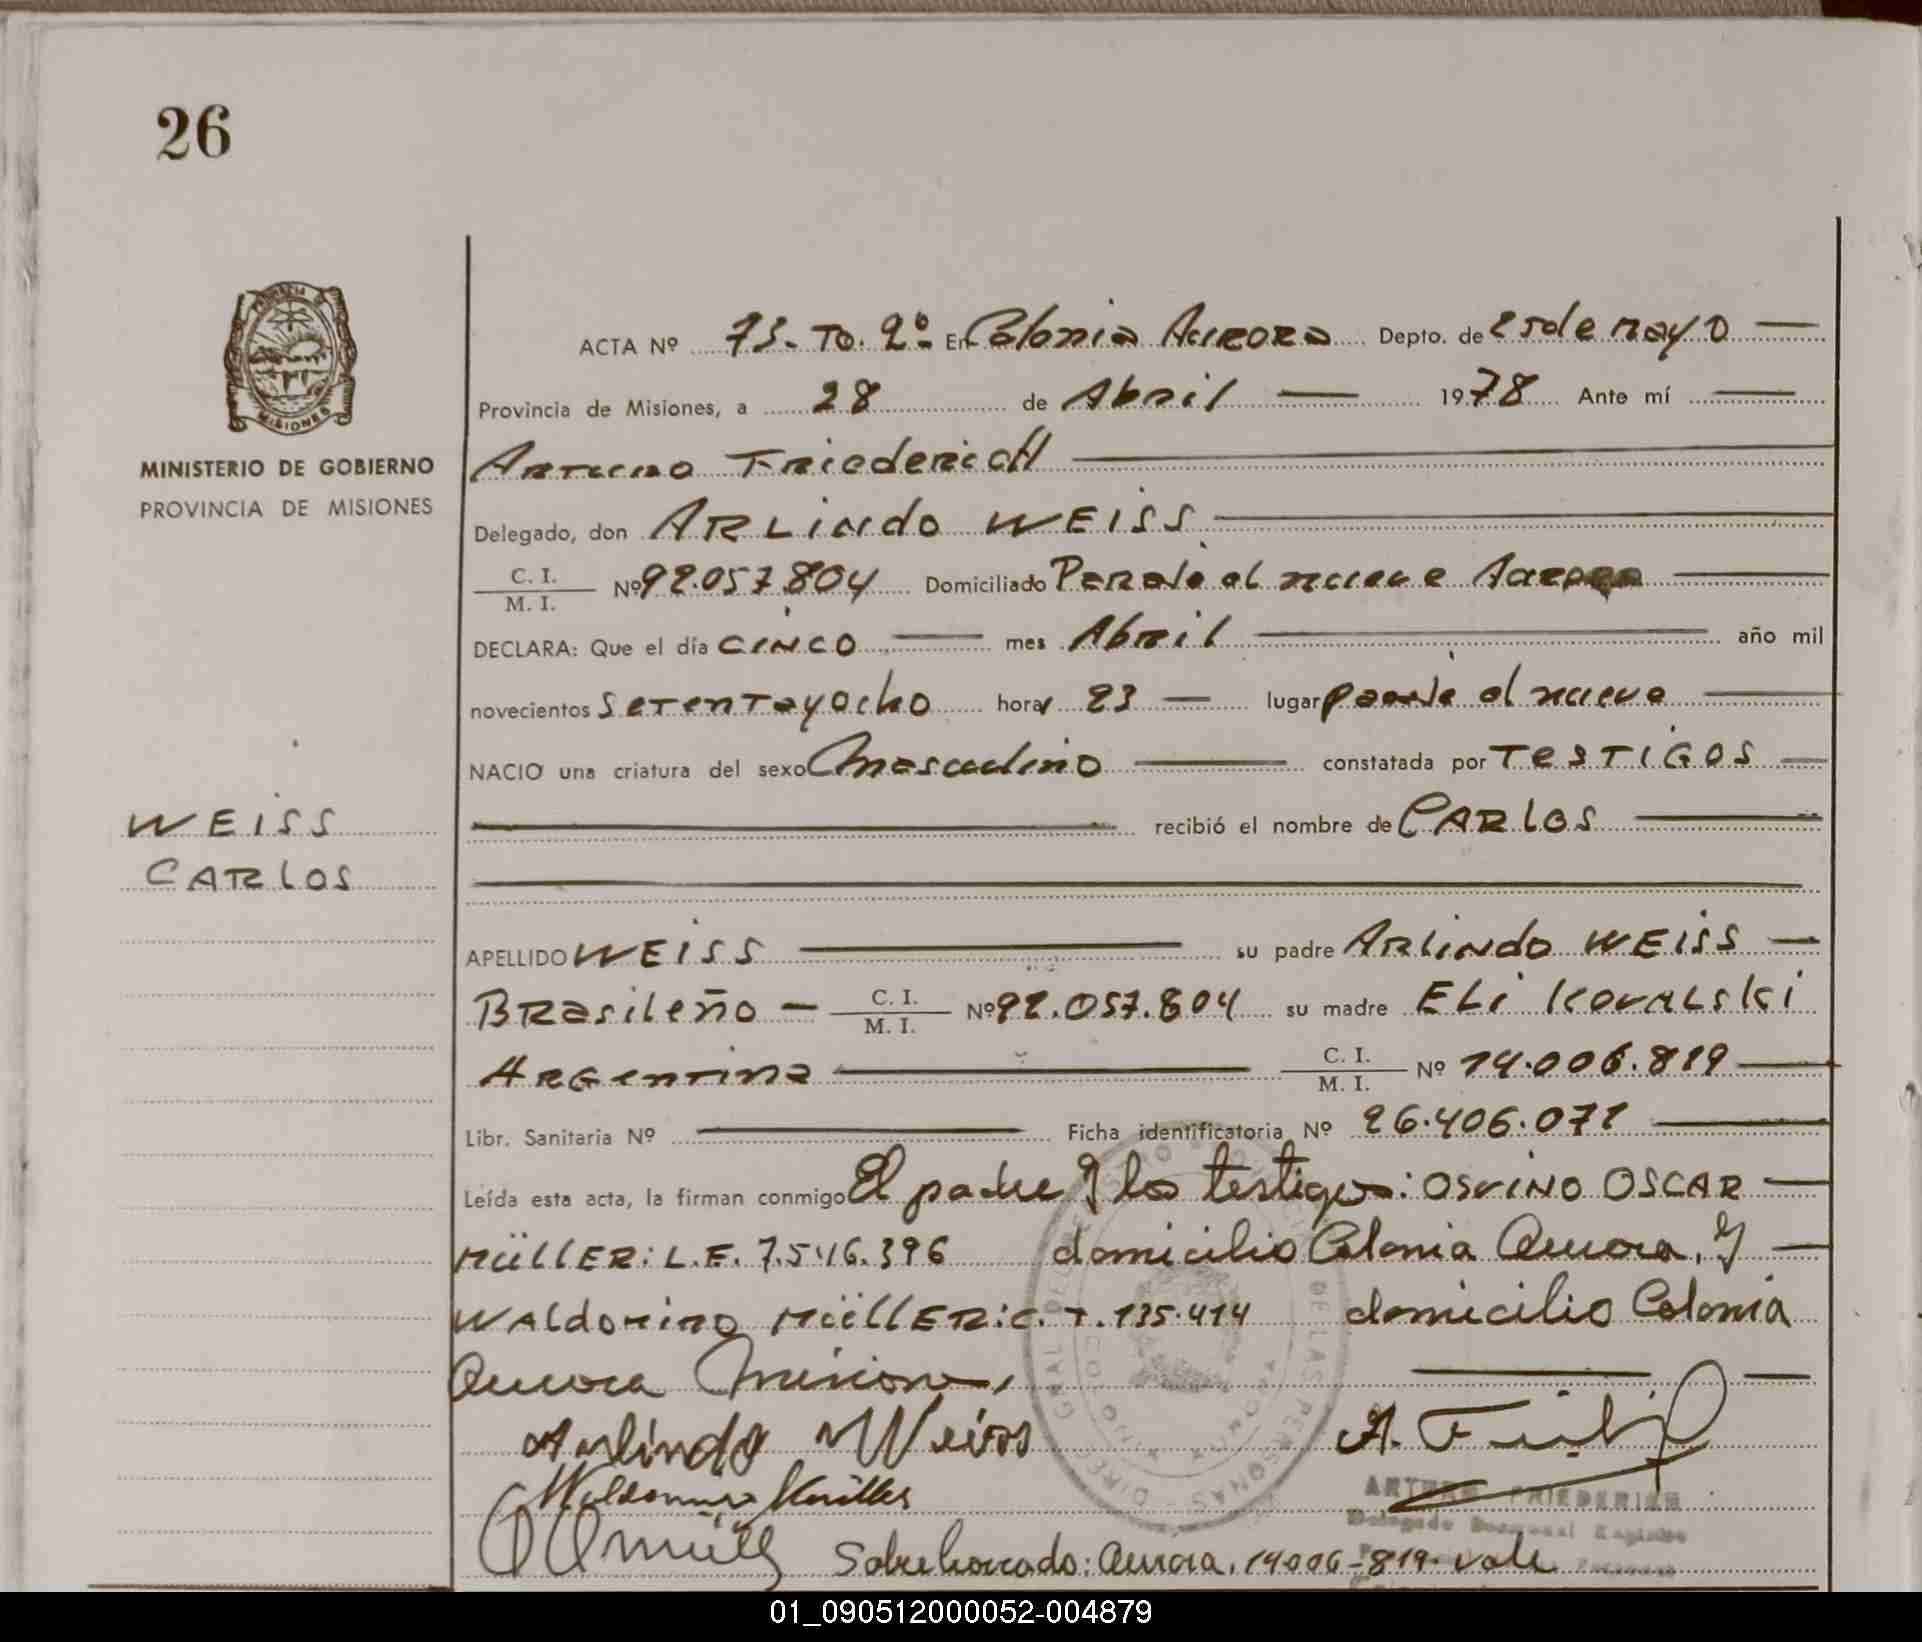 26
MINISTERIO DE GOBIERNO
PROVINCIA DE MISIONES
WEISS
CARLOS
ACTA Nº 73- To. 2º- En Colonia Aurora Depto. de 25 de mayo
Provincia de Misiones, a 28 de Abril 1978 Ante mí
Arturo Friederich
Delegado, don ARLINdo WEISS
C. I. / M. I. Nº 92.057.804 Domiciliado Paraje el nueve Aurora
DECLARA: Que el día CINCO mes Abril año mil
novecientos setentayocho hora 23 lugar paraje el nueve
NACIO una criatura del sexo Masculino constatada por TESTIGOS
recibió el nombre de CARLOS
APELLIDO WEISS su padre ARLINdo WEISS
BRasileño C. I. / M. I. Nº 92.057.804 su madre ELi KOVALSKi
ARGentina C. I. / M. I. Nº 14.006.819
Libr. Sanitaria Nº Ficha identificatoria Nº 26.406.071
Leída esta acta, la firman conmigo El padre y los testigos: OSVINO OSCAR
MüllER: L.E. 7.546.396 domicilio Colonia Aurora, y
WALdomiro MüllER: C. I. 135.414 domicilio Colonia
Aurora Misiones,
Arlindo Weiss
Waldomiro Müller
Sobreborrado: Aurora. 14006-819- vale
ARTURO FRIEDERICH
01_090512000052-004879